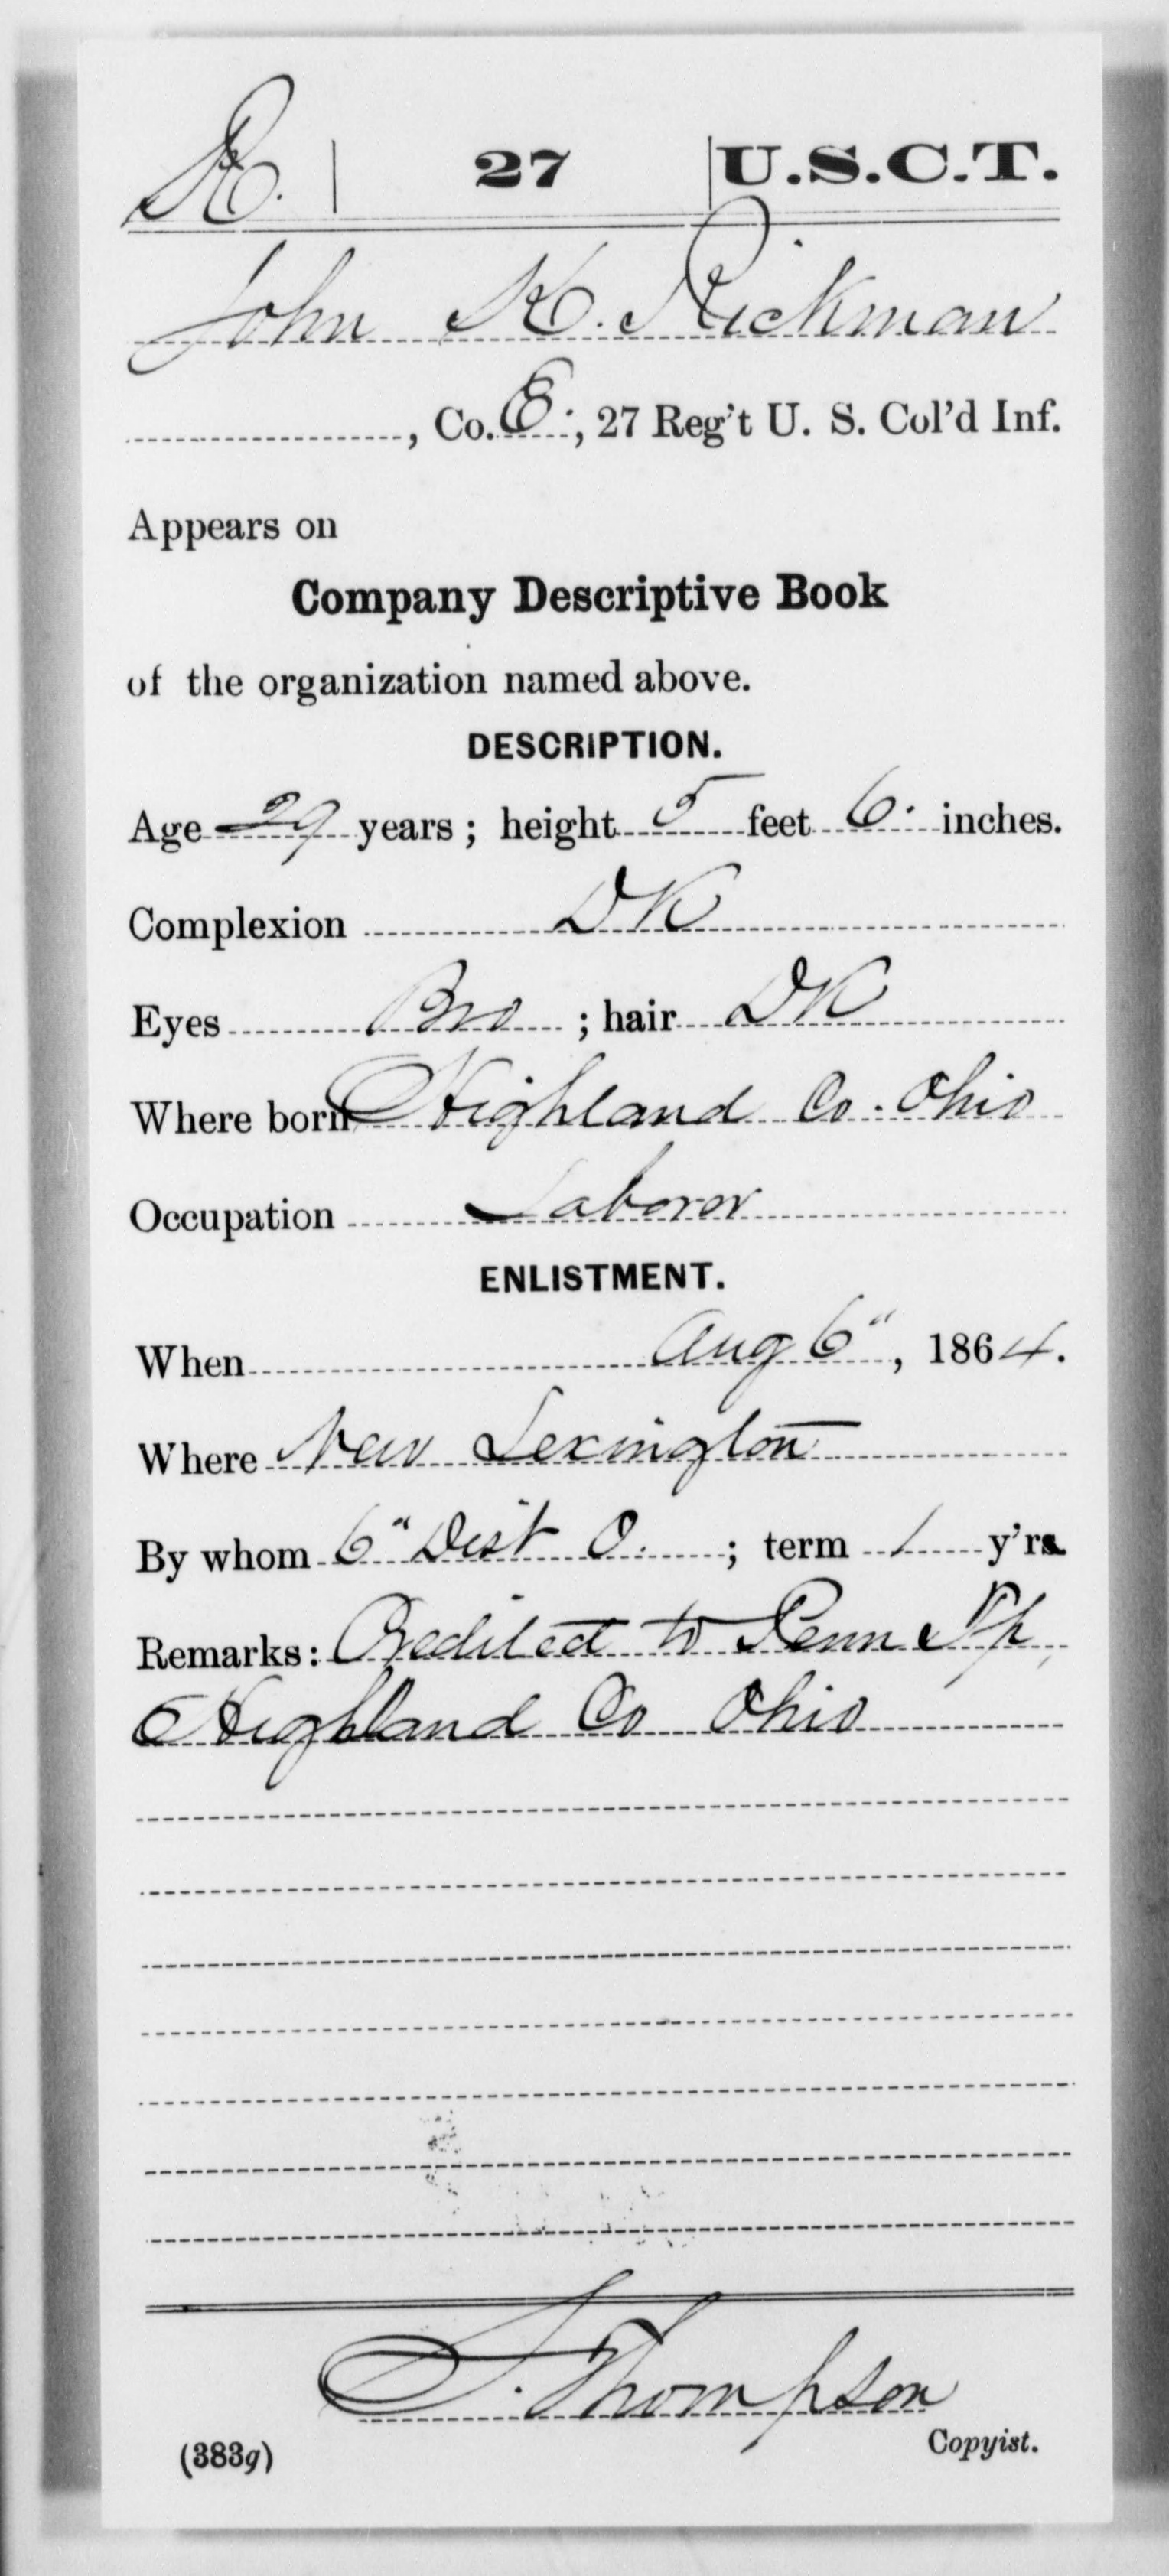 R. | 27 | U.S.C.T.
John K. Rickman
, Co. E., 27 Reg't U. S. Col'd Inf.
Appears on
Company Descriptive Book
of the organization named above.
DESCRIPTION.
Age 29 years; height 5 feet 6 inches.
Complexion DK
Eyes Bro ; hair DK
Where born Highland Co. Ohio
Occupation Laborer
ENLISTMENT.
When Aug 6", 1864.
Where New Lexington
By whom 6" Dist O. ; term 1 y'rs.
Remarks: Credited to Penn Tp,
Highland Co Ohio
S. Thompson
(383g) Copyist.